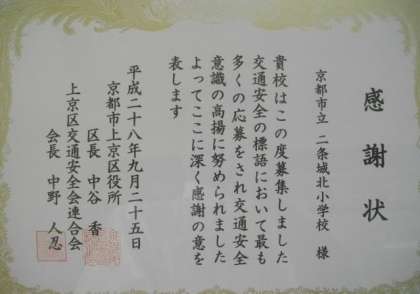 感謝状
京都市立 二条城北小学校 様
貴校はこの度募集しました
交通安全の標語において最も
多くの応募をされ交通安全
意識の高揚に努められました
よってここに深く感謝の意を
表します
平成二十八年九月二十五日
京都市上京区役所
区長 中谷 香
上京区交通安全会連合会
会長 中野 人忍